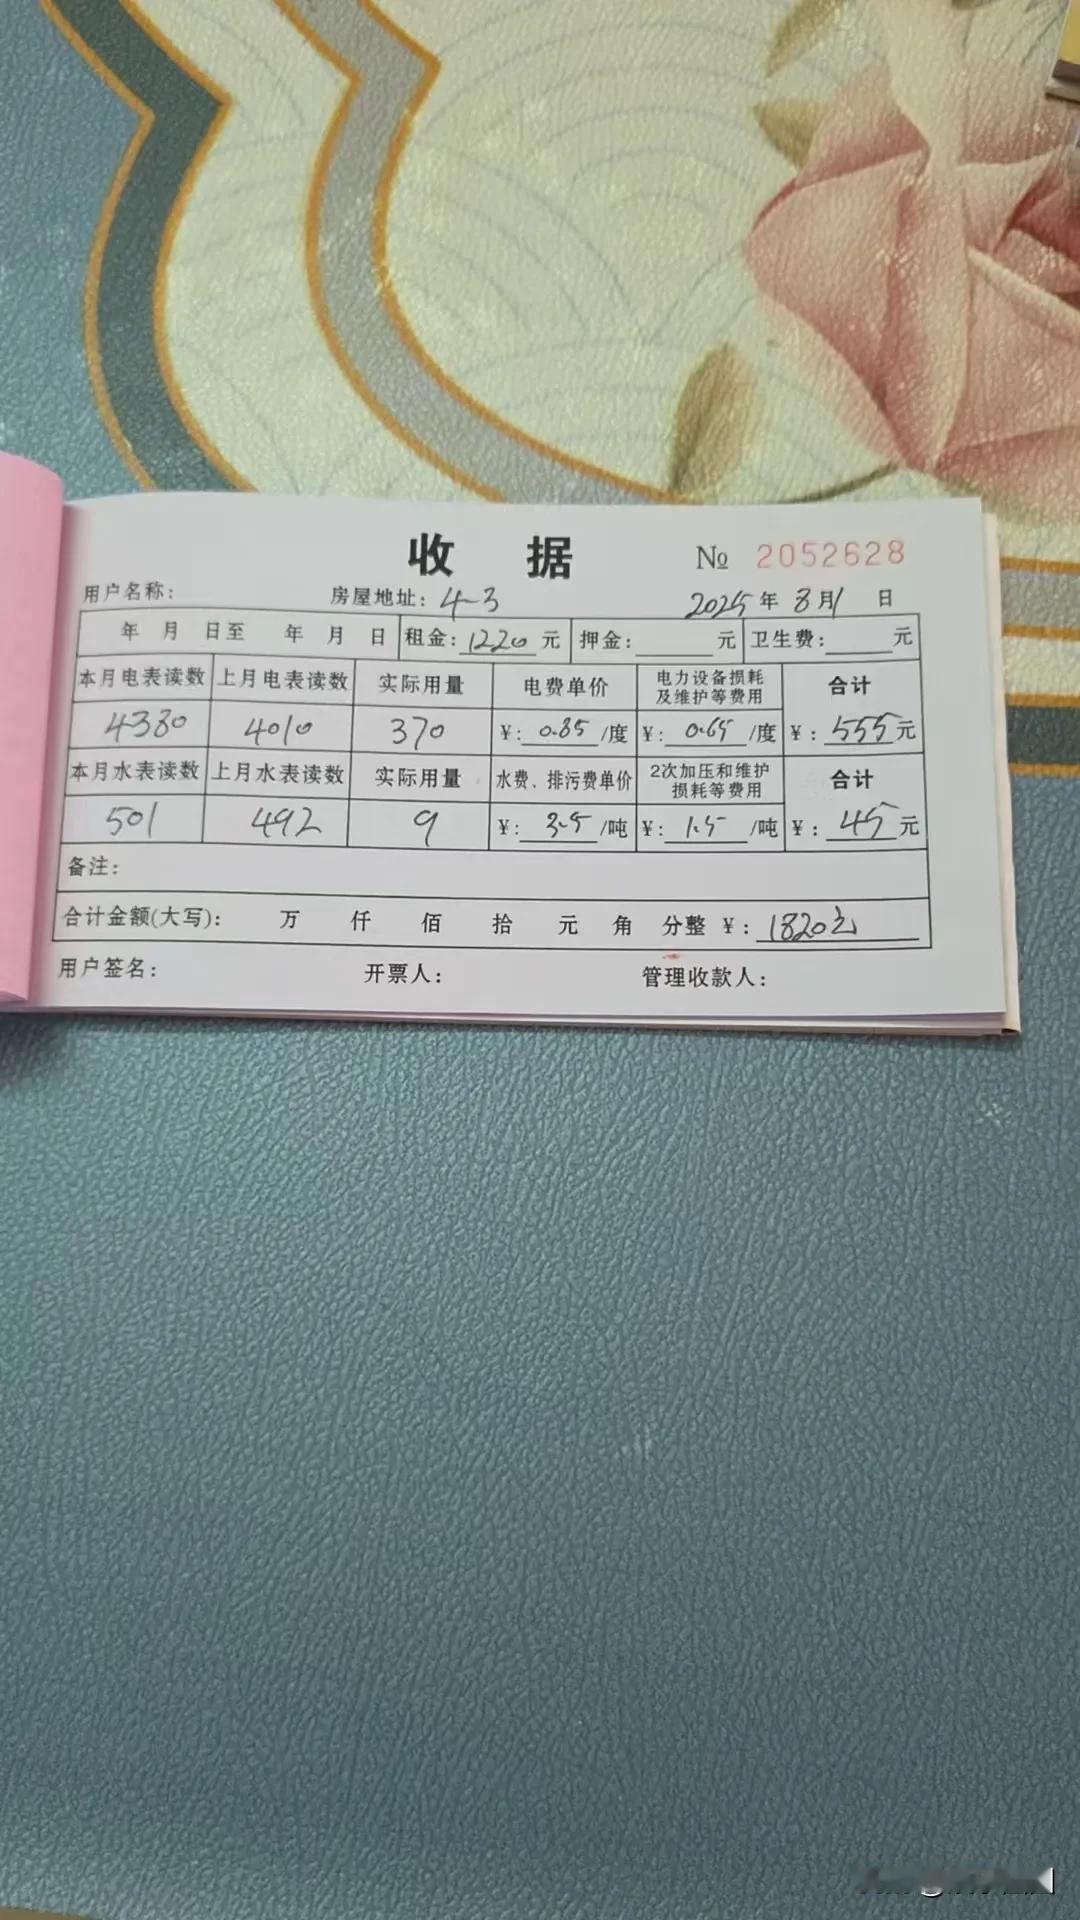 收 据 № 2052628
用户名称： 房屋地址：4-3 2025年8月1日
年 月 日至 年 月 日 租金：1220元 押金：元 卫生费：元
本月电表读数 上月电表读数 实际用量 电费单价 电力设备损耗及维护等费用 合计
4380 4010 370 ￥：0.85/度 ￥：0.65/度 ￥：555元
本月水表读数 上月水表读数 实际用量 水费、排污费单价 2次加压和维护损耗等费用 合计
501 492 9 ￥：3.5/吨 ￥：1.5/吨 ￥：45元
备注：
合计金额(大写)： 万 仟 佰 拾 元 角 分整 ￥：1820元
用户签名： 开票人： 管理收款人：